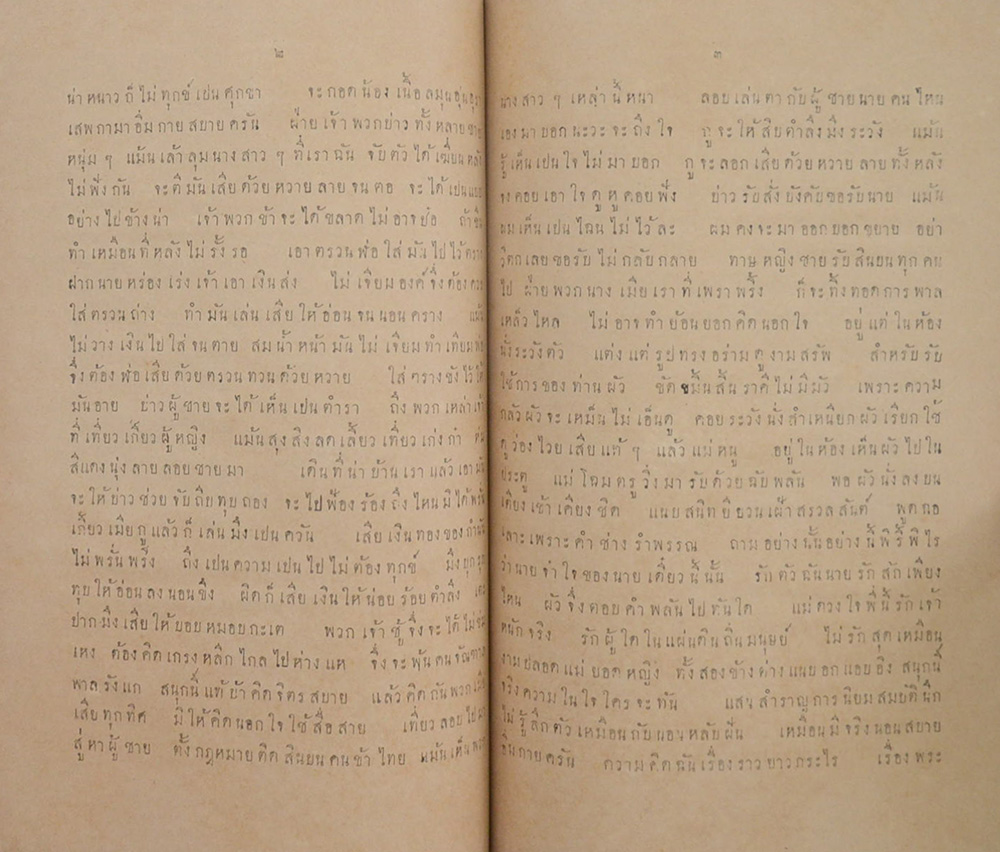 ๒
น่าหนาวก็ไม่ทุกข์เปนศุกขา จะกอดน้องเนื้อลมุนอุ่น
เสพกามาอิ่มกายสบายครัน ฝ่ายเจ้าพวกบ่าวทั้งหลาย
หนุ่ม ๆ แม้นเล้าลุมนางสาว ๆ ที่เราฉัน จับตัวได้เฆี่ยนหลัง
ไม่พึ่งกัน จะตีมันเสียด้วยหวายลายจนคอ จะได้เปน
อย่างไปข้างน่า เจ้าพวกข้าจะได้ขลาดไม่อาจย่อ ถ้า
ทำเหมือนที่หลังไม่รั้งรอ เอาตรวนฬ่อใส่มันไปไว้
ฝากนายหร่องเร่งเจ้าเอาเงินส่ง ไม่เจียมองค์จึ่งต้อง
ใส่ตรวนถ่าง ทำมันเล่นเสียให้อ่อนจนนอนคราง
ไม่วางเงินไปใส่จนตาย สมน้ำหน้ามันไม่เจียมทำเทียม
จึ่งต้องฬ่อเสียด้วยตรวนทวนด้วยหวาย ใส่ตรางขังไว้ให้
มันอาย บ่าวผู้ชายจะได้เห็นเปนตำรา ถึงพวกเหล่า
ที่เที่ยวเกี้ยวผู้หญิง แม้นสุงสิงลดเลี้ยวเที่ยวเก่งก๋า
สีแดงนุ่งลายลอยชายมา เดินที่น่าบ้านเราแล้วเอา
จะให้บ่าวช่วยจับถีบทุบถอง จะไปฟ้องร้องถึงไหนมิได้พรั่น
เกี้ยวเมียกูแล้วก็เล่นมึงเปนควัน เสียเงินทองของกำนัน
ไม่พรั่นพรึง ถึงเปนความเปนไปไม่ต้องทุกข์ มึงบุก
ทุบให้อ่อนลงนอนขึง ผิดก็เสียเงินให้น้อยร้อยตำลึง
ปากมึงเสียให้บอบหมอบกะเต พวกเจ้าชู้จึ่งจะได้ไม่
เหง ต้องคิดเกรงหลีกไกลไปห่างแห จึ่งจะพ้น
พาลรังแก สนุกนี้แท้ข้าคิดจิตรสบาย แล้วคิดกันพวก
เสียทุกทิศ มิให้คิดนอกใจใช้สื่อสาย เที่ยวลอบไป
สู่หาผู้ชาย ตั้งกฎหมายติดสินบนคนข้าไทย แม้นเห็น
๓
นางสาว ๆ เหล่านี้หนา ลอบเล่นตากับผู้ชายนายคนไหน
เองมาบอกนะวะจะถึงใจ กูจะให้สิบตำลึงมึงระวัง แม้น
รู้เห็นเปนใจไม่มาบอก กูจะลอกเสียด้วยหวายลายทั้งหลัง
จงคอยเอาใจดูหูคอยฟัง บ่าวรับสั่งบังคับขอรับนาย แม้น
ผมเห็นเปนไฉนไม่ไว้ละ ผมคงจะมาออกบอกขยาย อย่า
วิตกเลยขอรับไม่กลับกลาย ทาษหญิงชายรับสินบนทุกคน
ไป ฝ่ายพวกนางเมียเราที่เพราพริ้ง ก็จะทิ้งทอดการพาล
เหลวไหล ไม่อาจทำย้อนยอกคิดนอกใจ อยู่แต่ในห้อง
นั่งระวังตัว แต่งแต่รูปทรงอร่ามดูงามสรัพ สำหรับรับ
ใช้การของท่านผัว ขัดขมิ้นสิ้นราคีไม่มีมัว เพราะความ
กลัวผัวจะเหม็นไม่เอ็นดู คอยระวังนั่งสำเหนียกผัวเรียกใช้
ดูว่องไวยเสียแท้ ๆ แล้วแม่หนู อยู่ในห้องเห็นผัวไปใน
ประตู แม่โฉมตรูวิ่งมารับด้วยฉับพลัน พอผัวนั่งลงบน
เตียงเข้าเคียงชิด แนบสนิทยียวนเฝ้าสรวลสันต์ พูดฉอ
เลาะเพราะคำช่างรำพรรณ ถามอย่างนั้นอย่างนี้พิรี้พิไร
ว่านายจ๋าใจของนายเดี๋ยวนี้นั้น รักตัวฉันนายรักสักเพียง
ไหน ผัวจึ่งตอบคำพลันไปทันใด แม่ดวงใจพี่นี้รักเจ้า
หนักจริง รักผู้ใดในแผ่นดินถิ่นมนุษย์ ไม่รักสุดเหมือน
งามปลอดแม่ยอดหญิง ทั้งสองข้างต่างแนบอกแอบอิง สนุกนี้
จริงความในใจใครจะทัน แสนสำราญการนิยมสมบัตินึก
ไม่รู้สึกตัวเหมือนกับนอนหลับฝัน เหมือนมีจริงนอนสบาย
อิ่มกายครัน ความคิดฉันเรื่องราวยาวกระไร เรื่องพระ